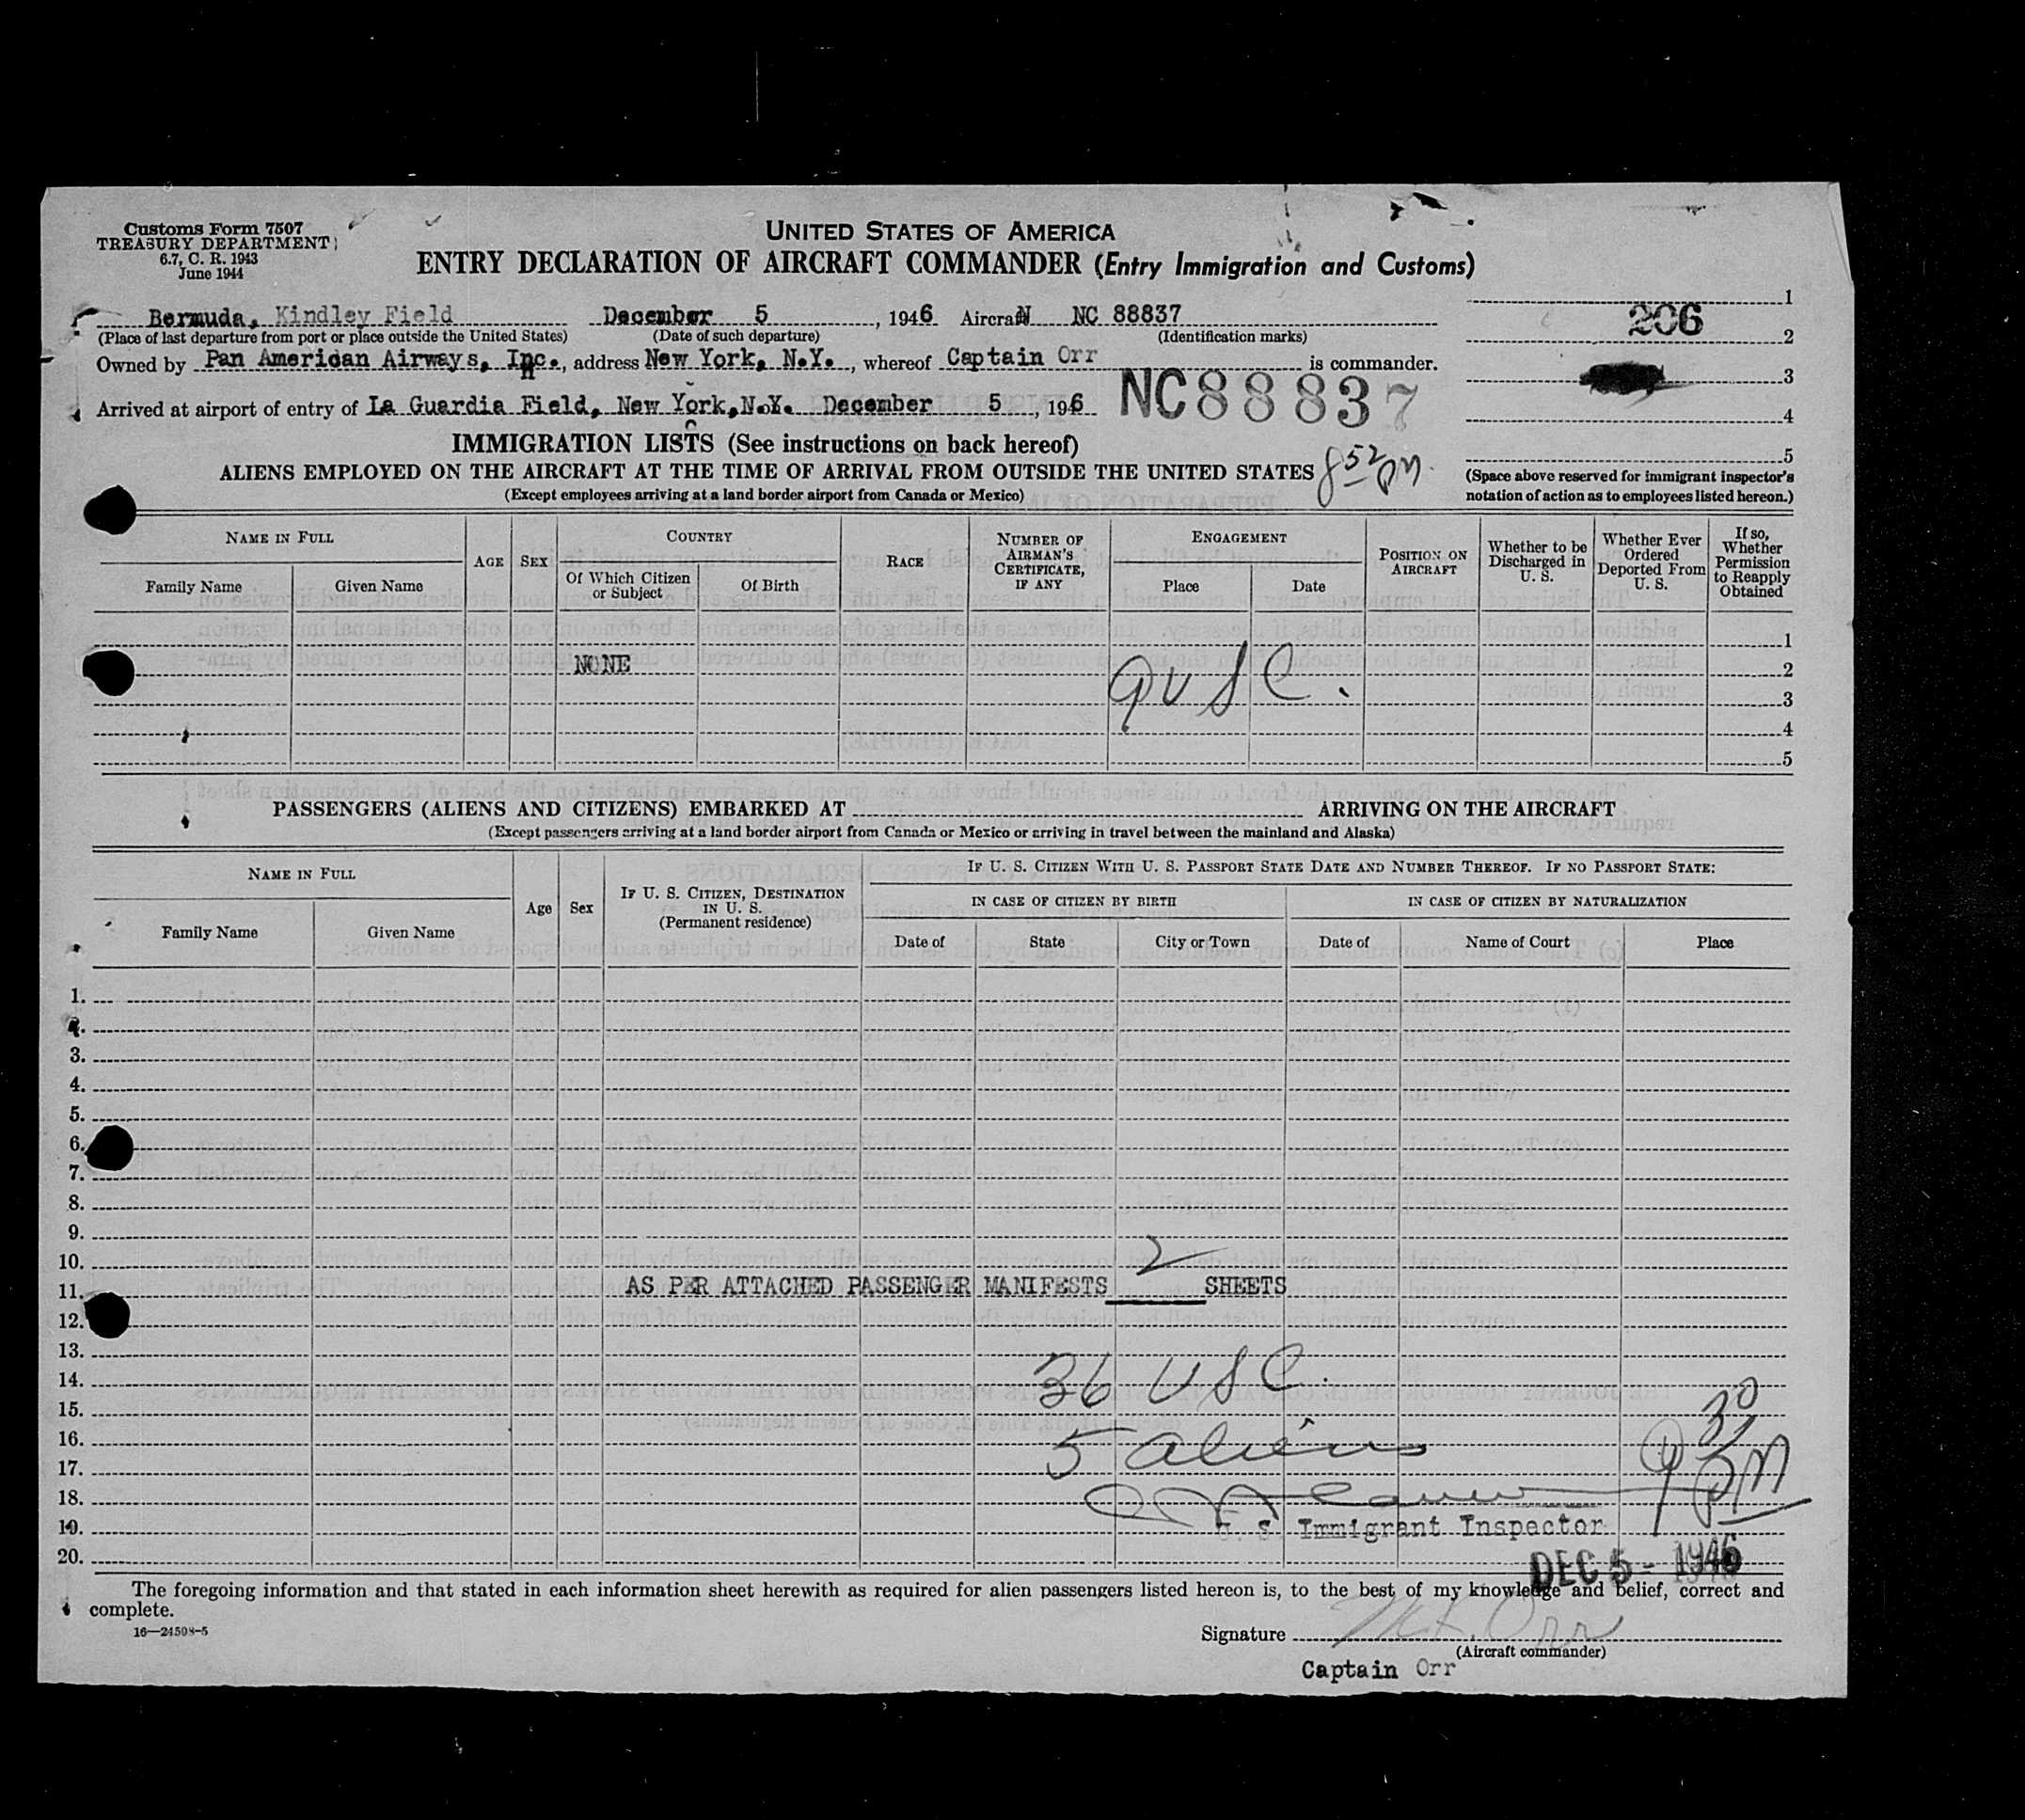 Customs Form 7507
TREASURY DEPARTMENT
6.7, C. R. 1943
June 1944
UNITED STATES OF AMERICA
ENTRY DECLARATION OF AIRCRAFT COMMANDER (Entry Immigration and Customs)
Bermuda, Kindley Field December 5, 1946 Aircraft NC 88837
(Place of last departure from port or place outside the United States) (Date of such departure) (Identification marks)
Owned by Pan American Airways, Inc., address New York, N.Y., whereof Captain Orr is commander.
Arrived at airport of entry of La Guardia Field, New York, N.Y. December 5, 1946 NC88837
1
206
2
3
4
5
(Space above reserved for immigrant inspector's
notation of action as to employees listed hereon.)
IMMIGRATION LISTS (See instructions on back hereof)
ALIENS EMPLOYED ON THE AIRCRAFT AT THE TIME OF ARRIVAL FROM OUTSIDE THE UNITED STATES 8 52 PM.
(Except employees arriving at a land border airport from Canada or Mexico)
NAME IN FULL
Family Name Given Name
AGE
SEX
COUNTRY
Of Which Citizen
or Subject
Of Birth
RACE
NUMBER OF
AIRMAN'S
CERTIFICATE,
IF ANY
ENGAGEMENT
Place Date
POSITION ON
AIRCRAFT
Whether to be
Discharged in
U. S.
Whether Ever
Ordered
Deported From
U. S.
If so,
Whether
Permission
to Reapply
Obtained
1
NONE 9 USC. 2
3
4
5
PASSENGERS (ALIENS AND CITIZENS) EMBARKED AT ARRIVING ON THE AIRCRAFT
(Except passengers arriving at a land border airport from Canada or Mexico or arriving in travel between the mainland and Alaska)
NAME IN FULL
Family Name Given Name
Age
Sex
IF U. S. CITIZEN, DESTINATION
IN U. S.
(Permanent residence)
IF U. S. CITIZEN WITH U. S. PASSPORT STATE DATE AND NUMBER THEREOF. IF NO PASSPORT STATE:
IN CASE OF CITIZEN BY BIRTH IN CASE OF CITIZEN BY NATURALIZATION
Date of State City or Town Date of Name of Court Place
1.
2.
3.
4.
5.
6.
7.
8.
9.
10.
11. AS PER ATTACHED PASSENGER MANIFESTS 2 SHEETS
12.
13.
14. 36 USC.
15.
16. 5 aliens 9 30 PM
17.
18.
19. U. S. Immigrant Inspector
20. DEC 5 - 1946
The foregoing information and that stated in each information sheet herewith as required for alien passengers listed hereon is, to the best of my knowledge and belief, correct and
complete.
16—24508-5
Signature Orr
(Aircraft commander)
Captain Orr